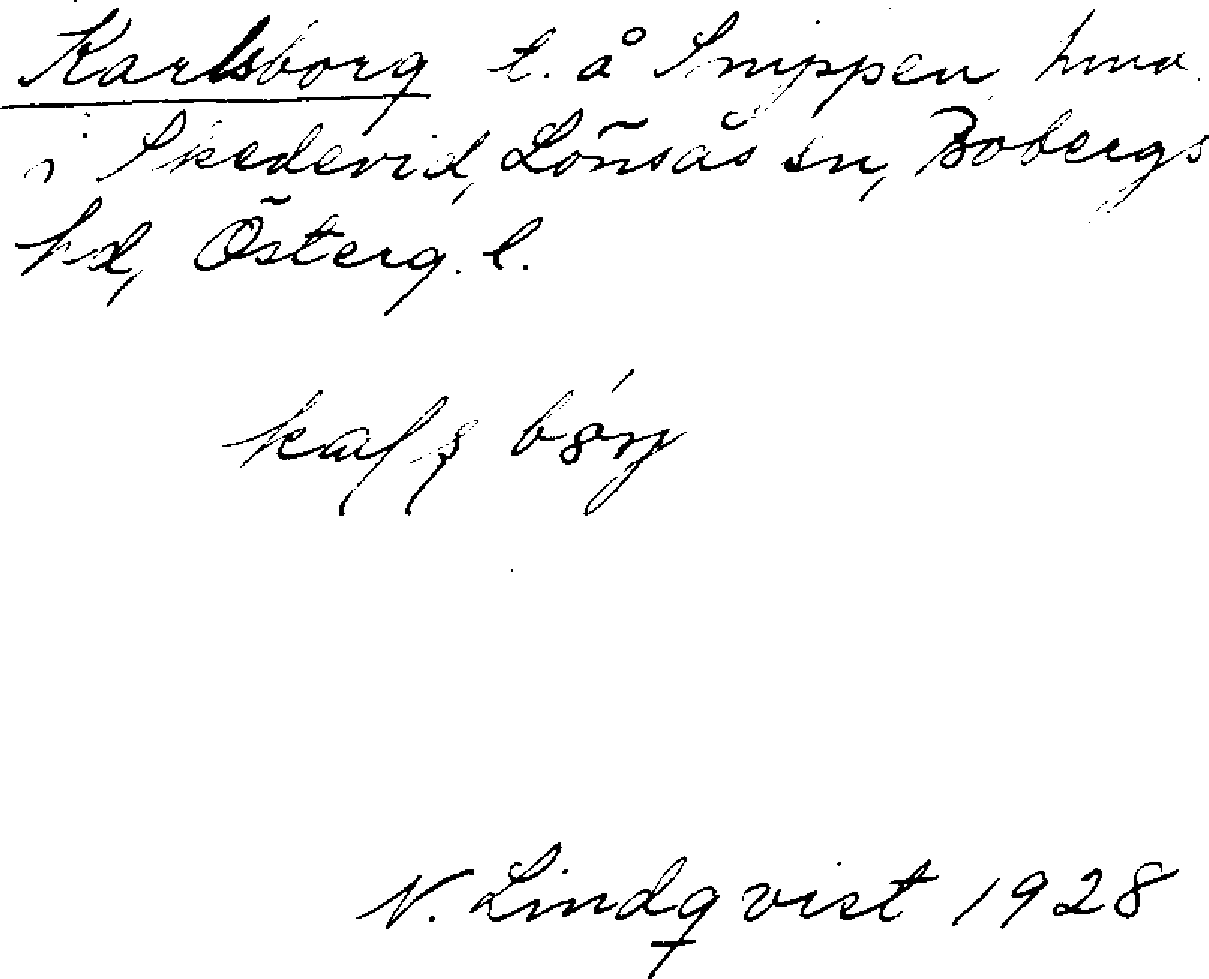 Karlsborg t. å Snippen hmd.
i Skedevid, Lönsås sn, Bobergs
hd, Österg. l.
N. Lindqvist 1928